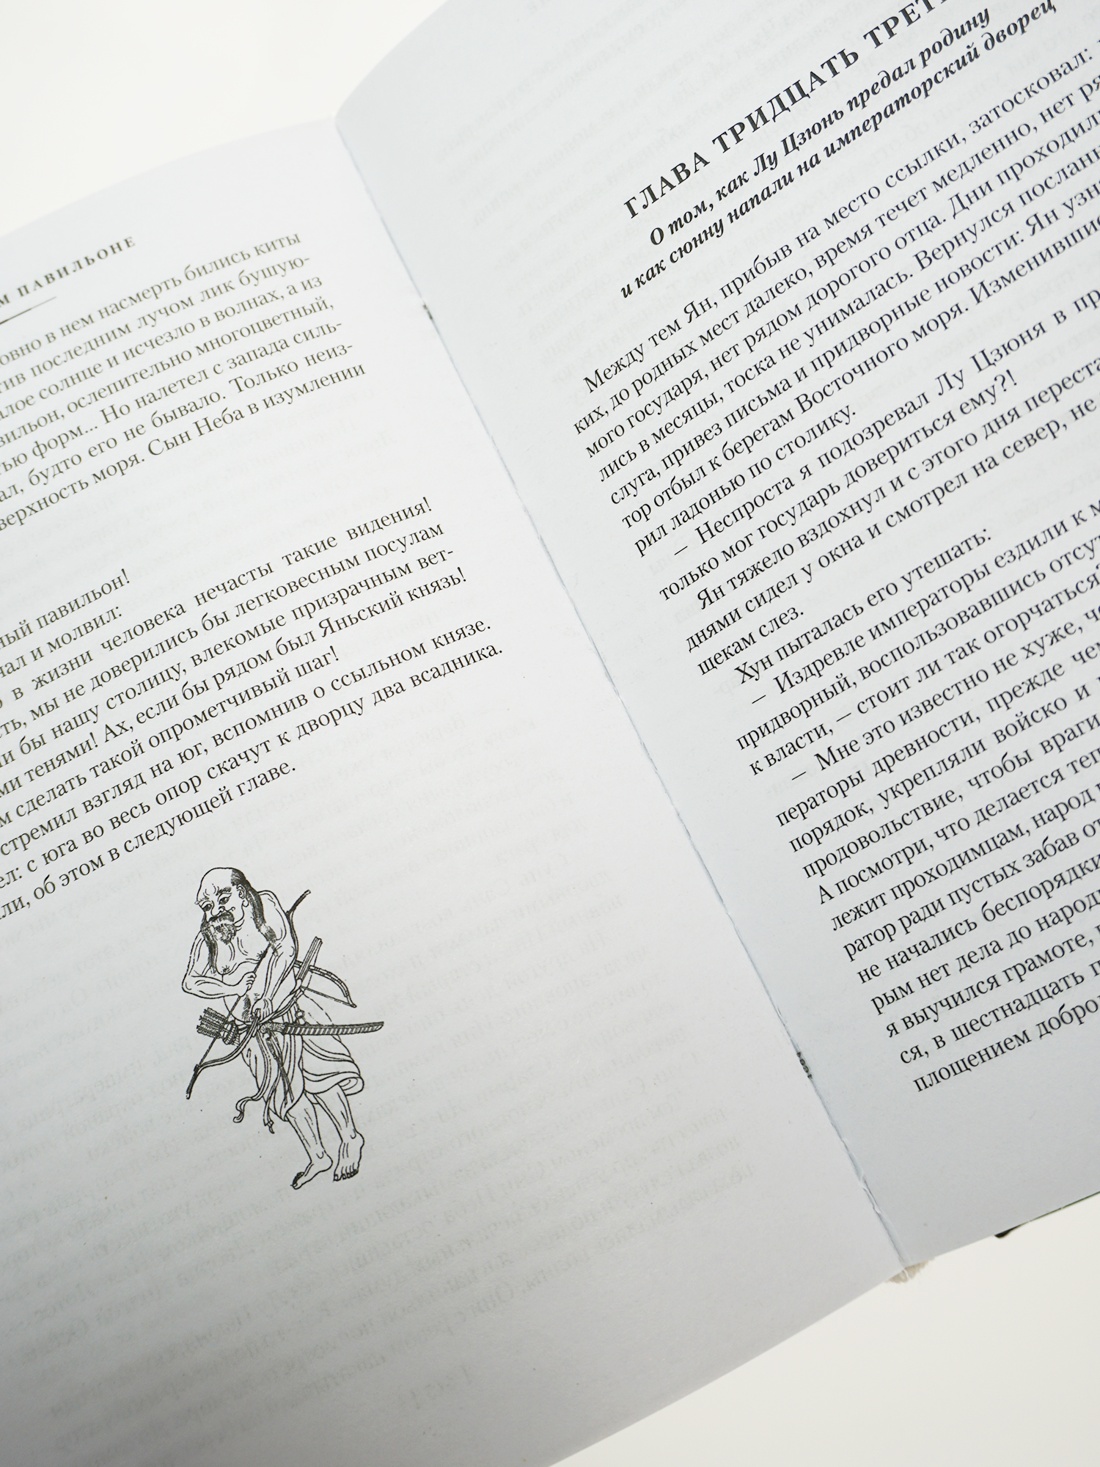 М ПАВИЛЬОНЕ
овно в нем насмерть бились киты
тив последним лучом лик бушую-
лое солнце и исчезло в волнах, а из
вильон, ослепительно многоцветный,
тью форм... Но налетел с запада силь-
ал, будто его не бывало. Только неиз-
верхность моря. Сын Неба в изумлении
ный павильон!
чал и молвил:
о в жизни человека нечасты такие видения!
сть, мы не доверились бы легковесным посулам
ли бы нашу столицу, влекомые призрачным вет-
ми тенями! Ах, если бы рядом был Яньский князь!
м сделать такой опрометчивый шаг!
стремил взгляд на юг, вспомнив о ссыльном князе.
ел: с юга во весь опор скачут к дворцу два всадника.
ли, об этом в следующей главе.
ГЛАВА ТРИДЦАТЬ ТРЕТЬ
О том, как Лу Цзюнь предал родину
и как сюнну напали на императорский дворец
Между тем Ян, прибыв на место ссылки, затосковал:
ких, до родных мест далеко, время течет медленно, нет ря
мого государя, нет рядом дорогого отца. Дни проходили
лись в месяцы, тоска не унималась. Вернулся посланн
слуга, привез письма и придворные новости: Ян узна
тор отбыл к берегам Восточного моря. Изменившис
рил ладонью по столику.
— Неспроста я подозревал Лу Цзюня в пр
только мог государь довериться ему?!
Ян тяжело вздохнул и с этого дня переста
днями сидел у окна и смотрел на север, не
щекам слез.
Хун пыталась его утешать:
— Издревле императоры ездили к м
придворный, воспользовавшись отсут
к власти, — стоит ли так огорчаться?
— Мне это известно не хуже, че
ператоры древности, прежде чем
порядок, укрепляли войско и
продовольствие, чтобы враги
А посмотри, что делается теп
лежит проходимцам, народ
ратор ради пустых забав от
не начались беспорядки
рым нет дела до народ
я выучился грамоте,
ся, в шестнадцать п
площением добро